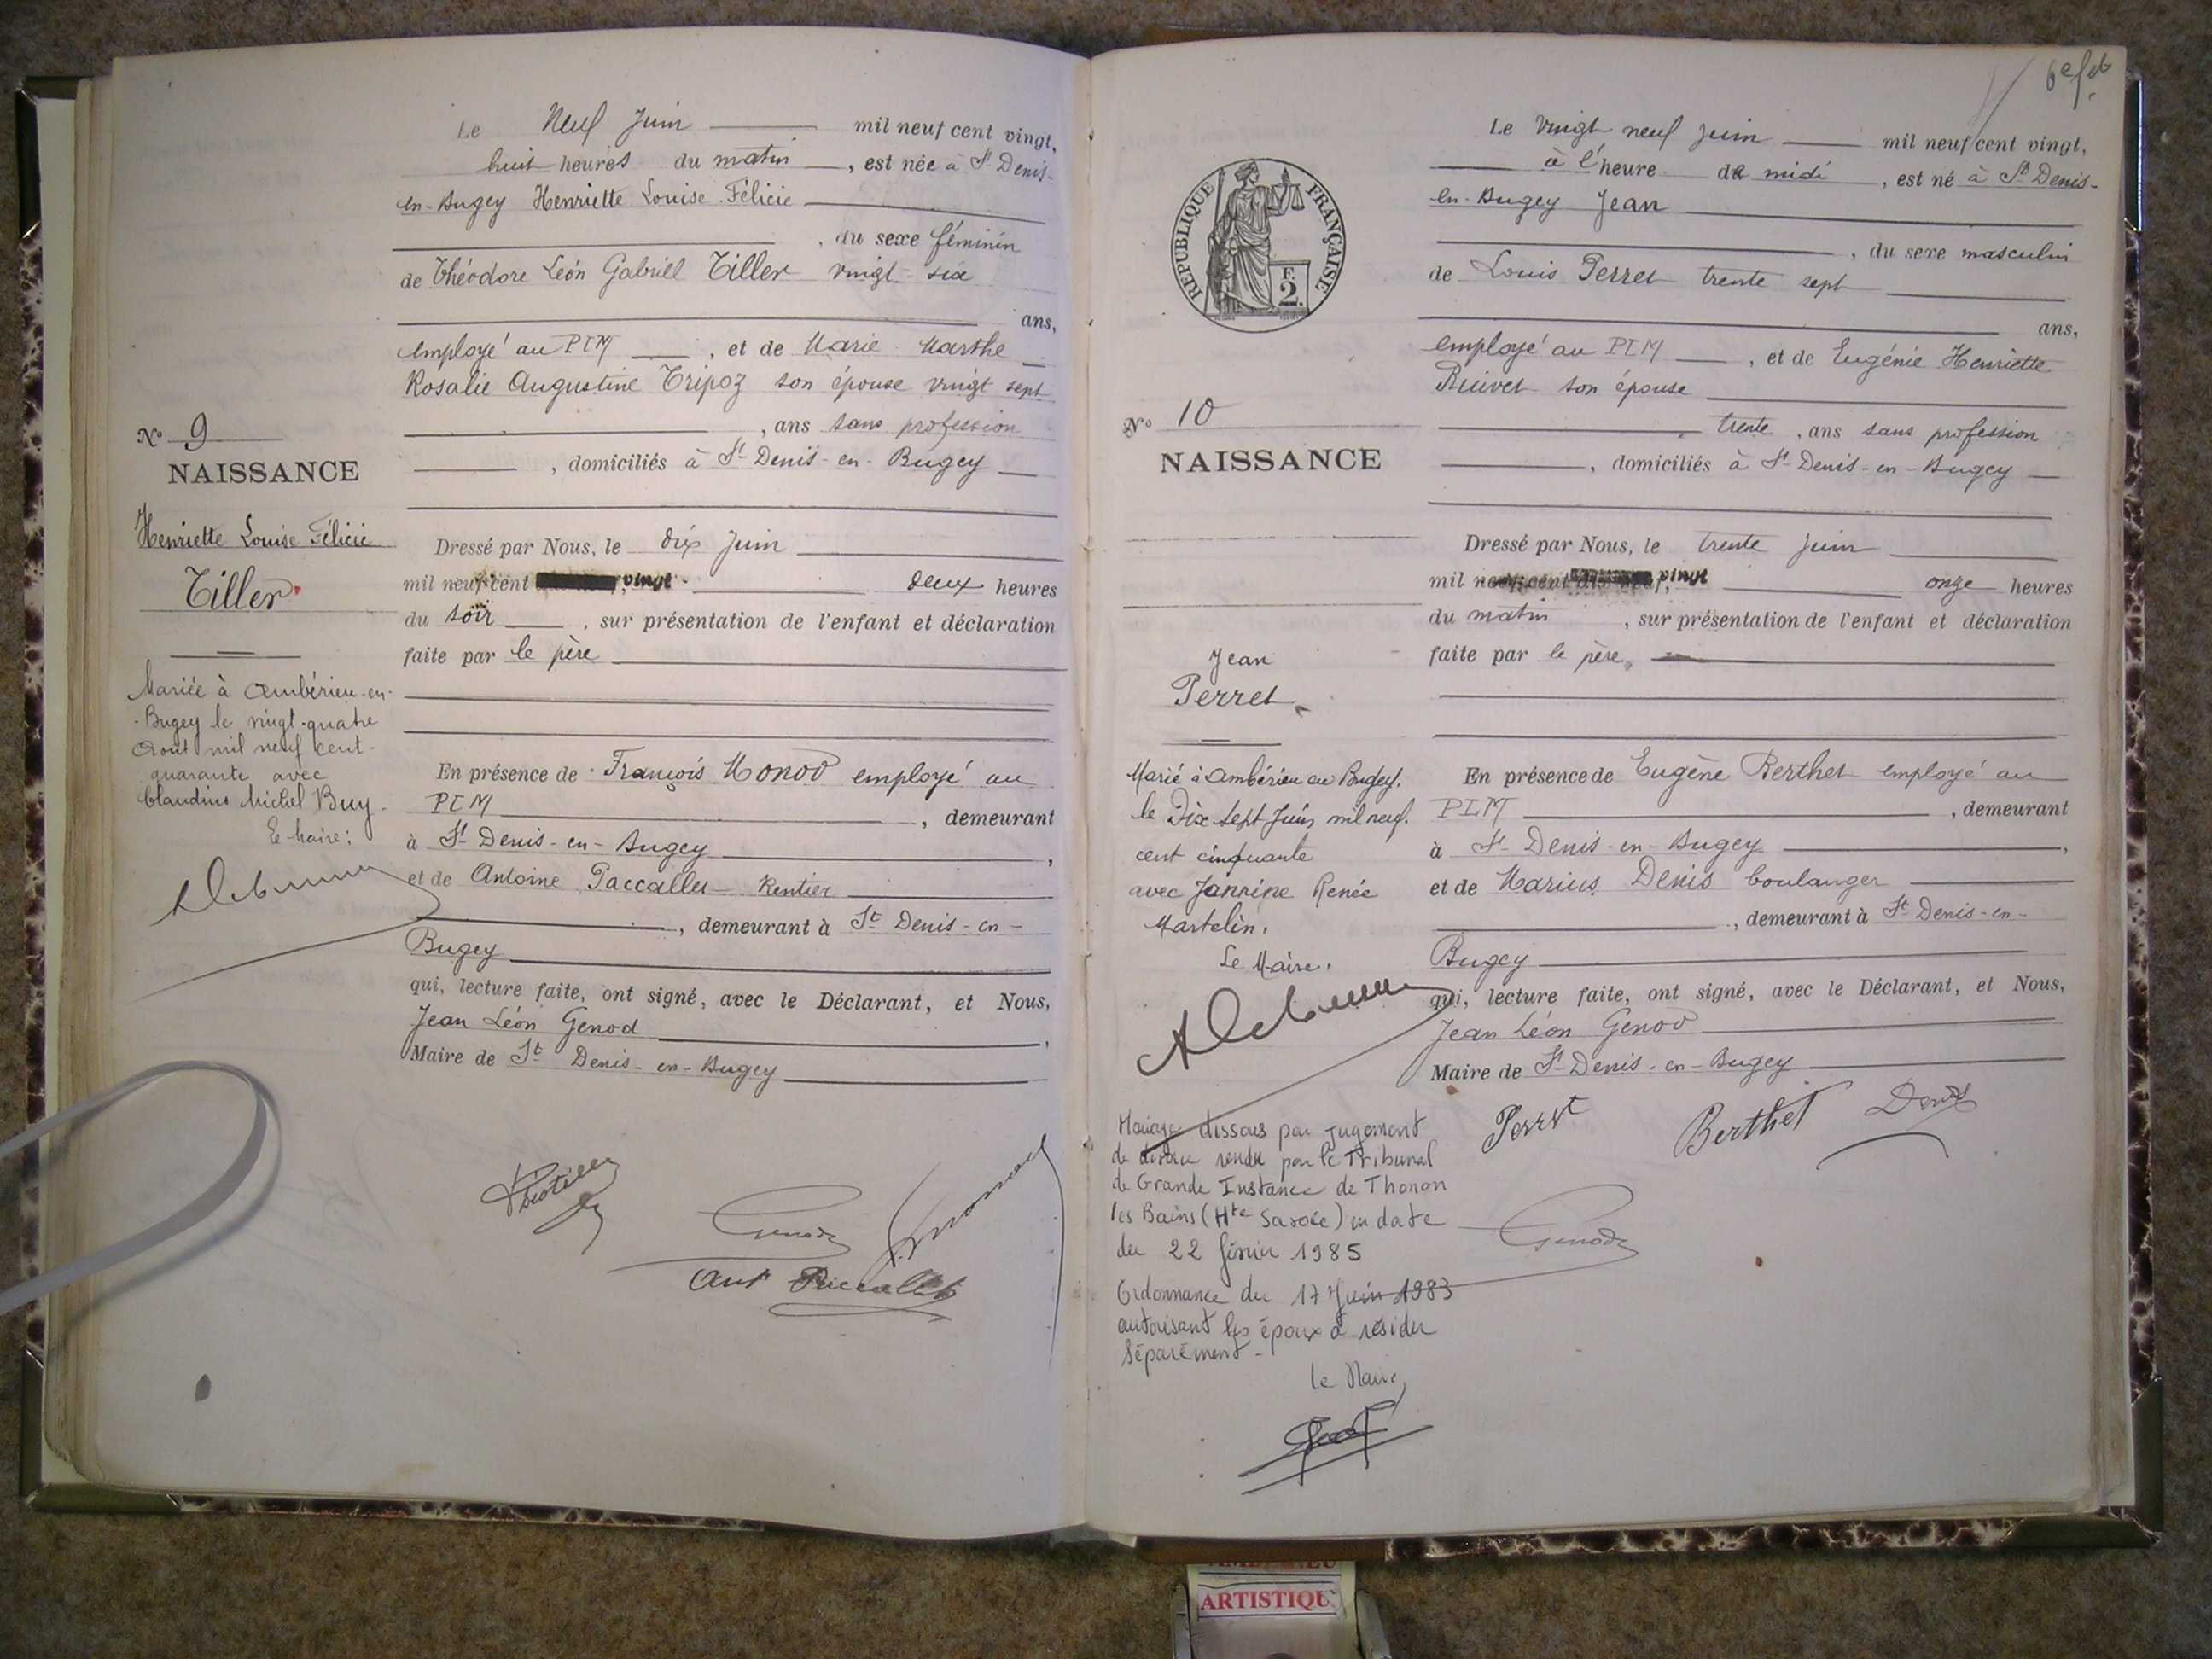 Le Neuf Juin mil neuf cent vingt,
huit heures du matin, est née à St Denis-
en-Bugey Henriette Louise Félicie
, du sexe féminin
de Théodore Léon Gabriel Tiller vingt-six
ans,
employé au PLM, et de Marie Marthe
Rosalie Augustine Tripoz son épouse vingt sept
, ans sans profession
, domiciliés à St Denis-en-Bugey
No 9
NAISSANCE
Henriette Louise Félicie
Tiller
Dressé par Nous, le dix Juin
mil neuf cent vingt deux heures
du soir, sur présentation de l'enfant et déclaration
faite par le père
Mariée à Ambérieu-en-
-Bugey le vingt-quatre
Août mil neuf cent-
quarante avec
Claudius Michel Buy.
Le Maire:
En présence de François Monod employé au
PLM, demeurant
à St Denis-en-Bugey,
et de Antoine Paccallet Rentier
, demeurant à St Denis-en-
Bugey
qui, lecture faite, ont signé, avec le Déclarant, et Nous,
Jean Léon Genod,
Maire de St Denis-en-Bugey
Genod
Ant Paccallet
6e f et
RÉPUBLIQUE FRANÇAISE
F.
2.
Le vingt neuf juin mil neuf cent vingt,
à l'heure de midi, est né à St Denis-
en-Bugey Jean
, du sexe masculin
de Louis Perret trente sept
ans,
employé au PLM, et de Eugénie Henriette
Ruivet son épouse
trente, ans sans profession
, domiciliés à St Denis-en-Bugey
No 10
NAISSANCE
Jean
Perret
Dressé par Nous, le trente Juin
mil neuf cent vingt onze heures
du matin, sur présentation de l'enfant et déclaration
faite par le père,
Marié à Ambérieu en Bugey.
le Dix sept Juin mil neuf.
cent cinquante
avec Jannine Renée
Martelin.
Le Maire.
En présence de Eugène Berthet employé au
PLM, demeurant
à St Denis-en-Bugey,
et de Marius Denis boulanger
, demeurant à St Denis-en-
Bugey
qui, lecture faite, ont signé, avec le Déclarant, et Nous,
Jean Léon Genod
Maire de St Denis-en-Bugey
Perret
Berthet
Denis
Genod
Mariage dissous par jugement
de divorce rendu par le Tribunal
de Grande Instance de Thonon
les Bains (Hte Savoie) en date
du 22 février 1985
Ordonnance du 17 Juin 1983
autorisant les époux à résider
séparément-
Le Maire,
ARTISTIQU